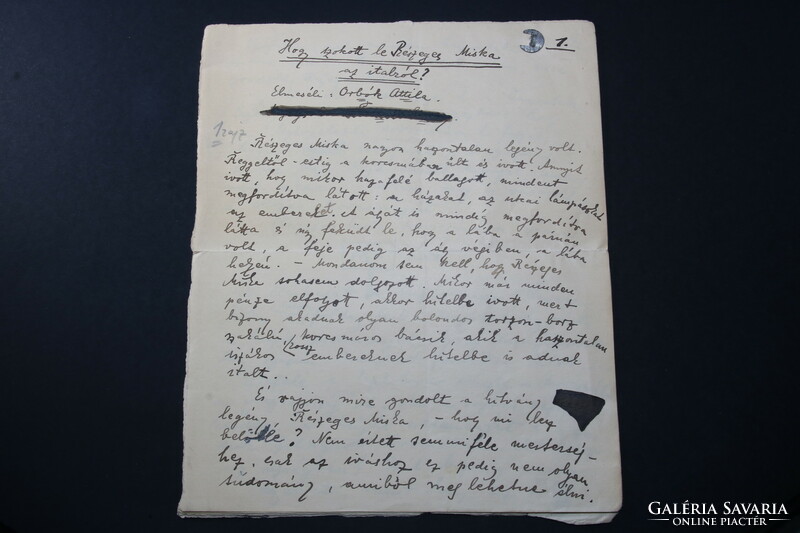 1.
Hogy szokott le Részeges Miska
az italról?
Elmeséli: Orbók Attila.
1 rajz
Részeges Miska nagyon haszontalan legény volt.
Reggeltől-estig a korcsmában ült és ivott. Annyit
ivott, hogy mikor hazafelé ballagott, mindent
megfordítva látott: a házakat, az utcai lámpásokat
az embereket. A ágát is mindig megfordítva
látta és úgy feküdt le, hogy a lába a párnán
volt, a feje pedig az ágy végiben, a lába
helyén. - Mondanom sem kell, hogy Részeges
Miska sohasem dolgozott. Mikor már minden
pénze elfogyott, akkor hitelbe ivott, mert
bizony akadnak olyan bolondos torzon-borz
szakállú korcsmáros bácsik, akik a haszontalan
iszákos rossz embereknek hitelbe is adnak
italt..
És vajjon mire gondolt a hitvány
legény Részeges Miska, - hogy mi lesz
belőlle? Nem értett semmiféle mesterség-
hez, csak az iváshoz ez pedig nem olyan
tudomány, amiből meg lehetne élni.
GALÉRIA SAVARIA
ONLINE PIACTÉR